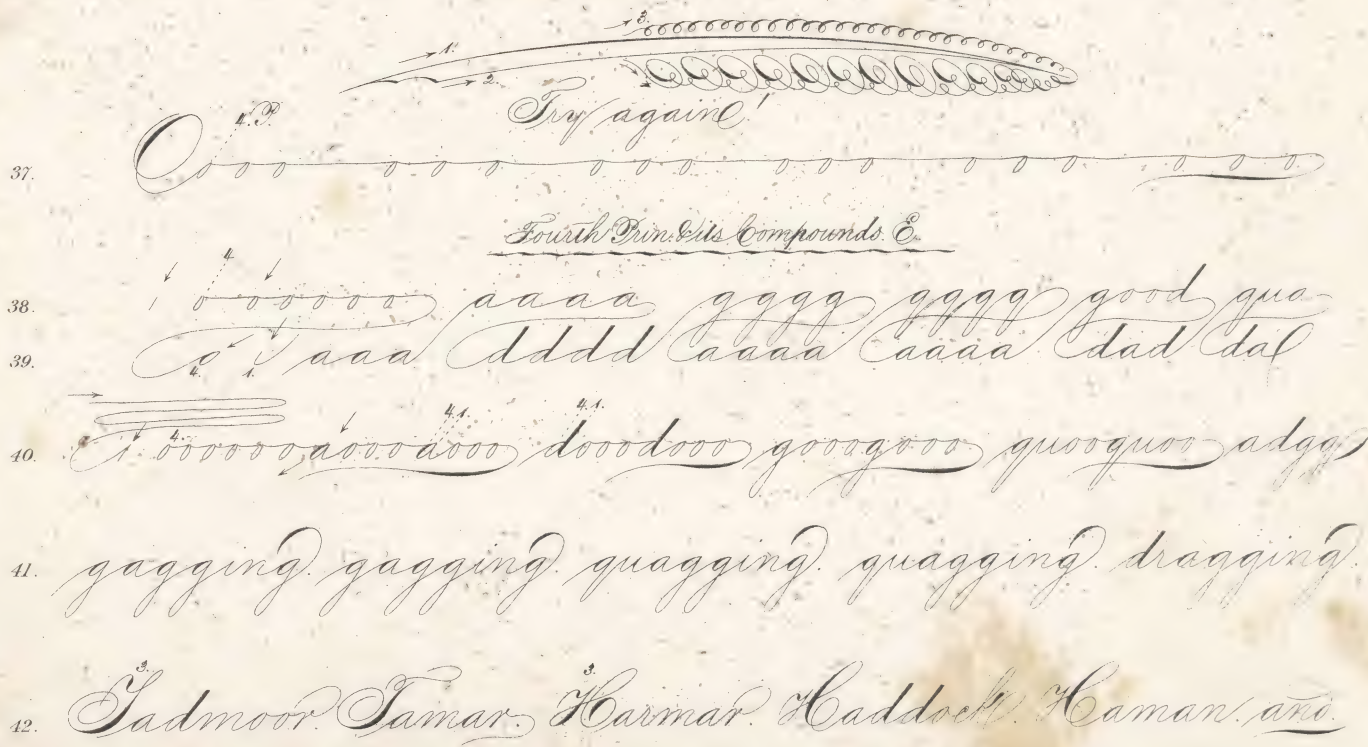 3.
1.
2.
Try again!
4. P.
37. O o o o o o o o o o o o o o o o o o o
Fourth Prin. & its Compounds. E.
4.
38. ı o o o o o o a a a a g g g g g g g g good qua
39. o ı a a a d d d d a a a a a a a a dad dal
4. 1.
4. 4.1. 4.1.
40. ı oooooooaoooaooo dooodooo gooogooo quooquoo adgq
41. gagging. gagging. quagging. quagging. dragging.
3. 3.
42. Tadmoor. Tamar. Harmar. Haddock. Haman. and.